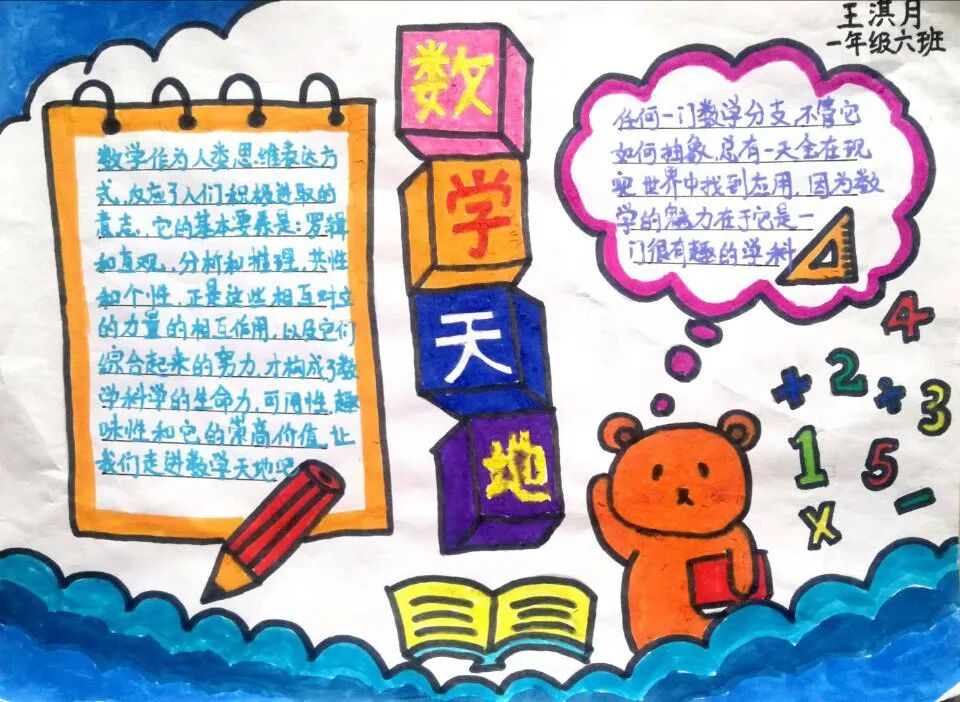 王淇月
一年级六班
数
学
天
地
数学作为人类思维表达方
式,反应了人们积极进取的
意志,它的基本要素是:罗辑
和直观,分析和推理,共性
和个性,正是这些相互对立
的力量的相互作用,以及它们
综合起来的努力,才构成了数
学科学的生命力,可用性,趣
味性和它的崇高价值,让
我们走进数学天地吧
任何一门数学分支,不管它
如何抽象,总有一天会在现
实世界中找到应用,因为数
学的魅力在于它是一
门很有趣的学科
4
+ 2 ÷ 3
1 5 -
x